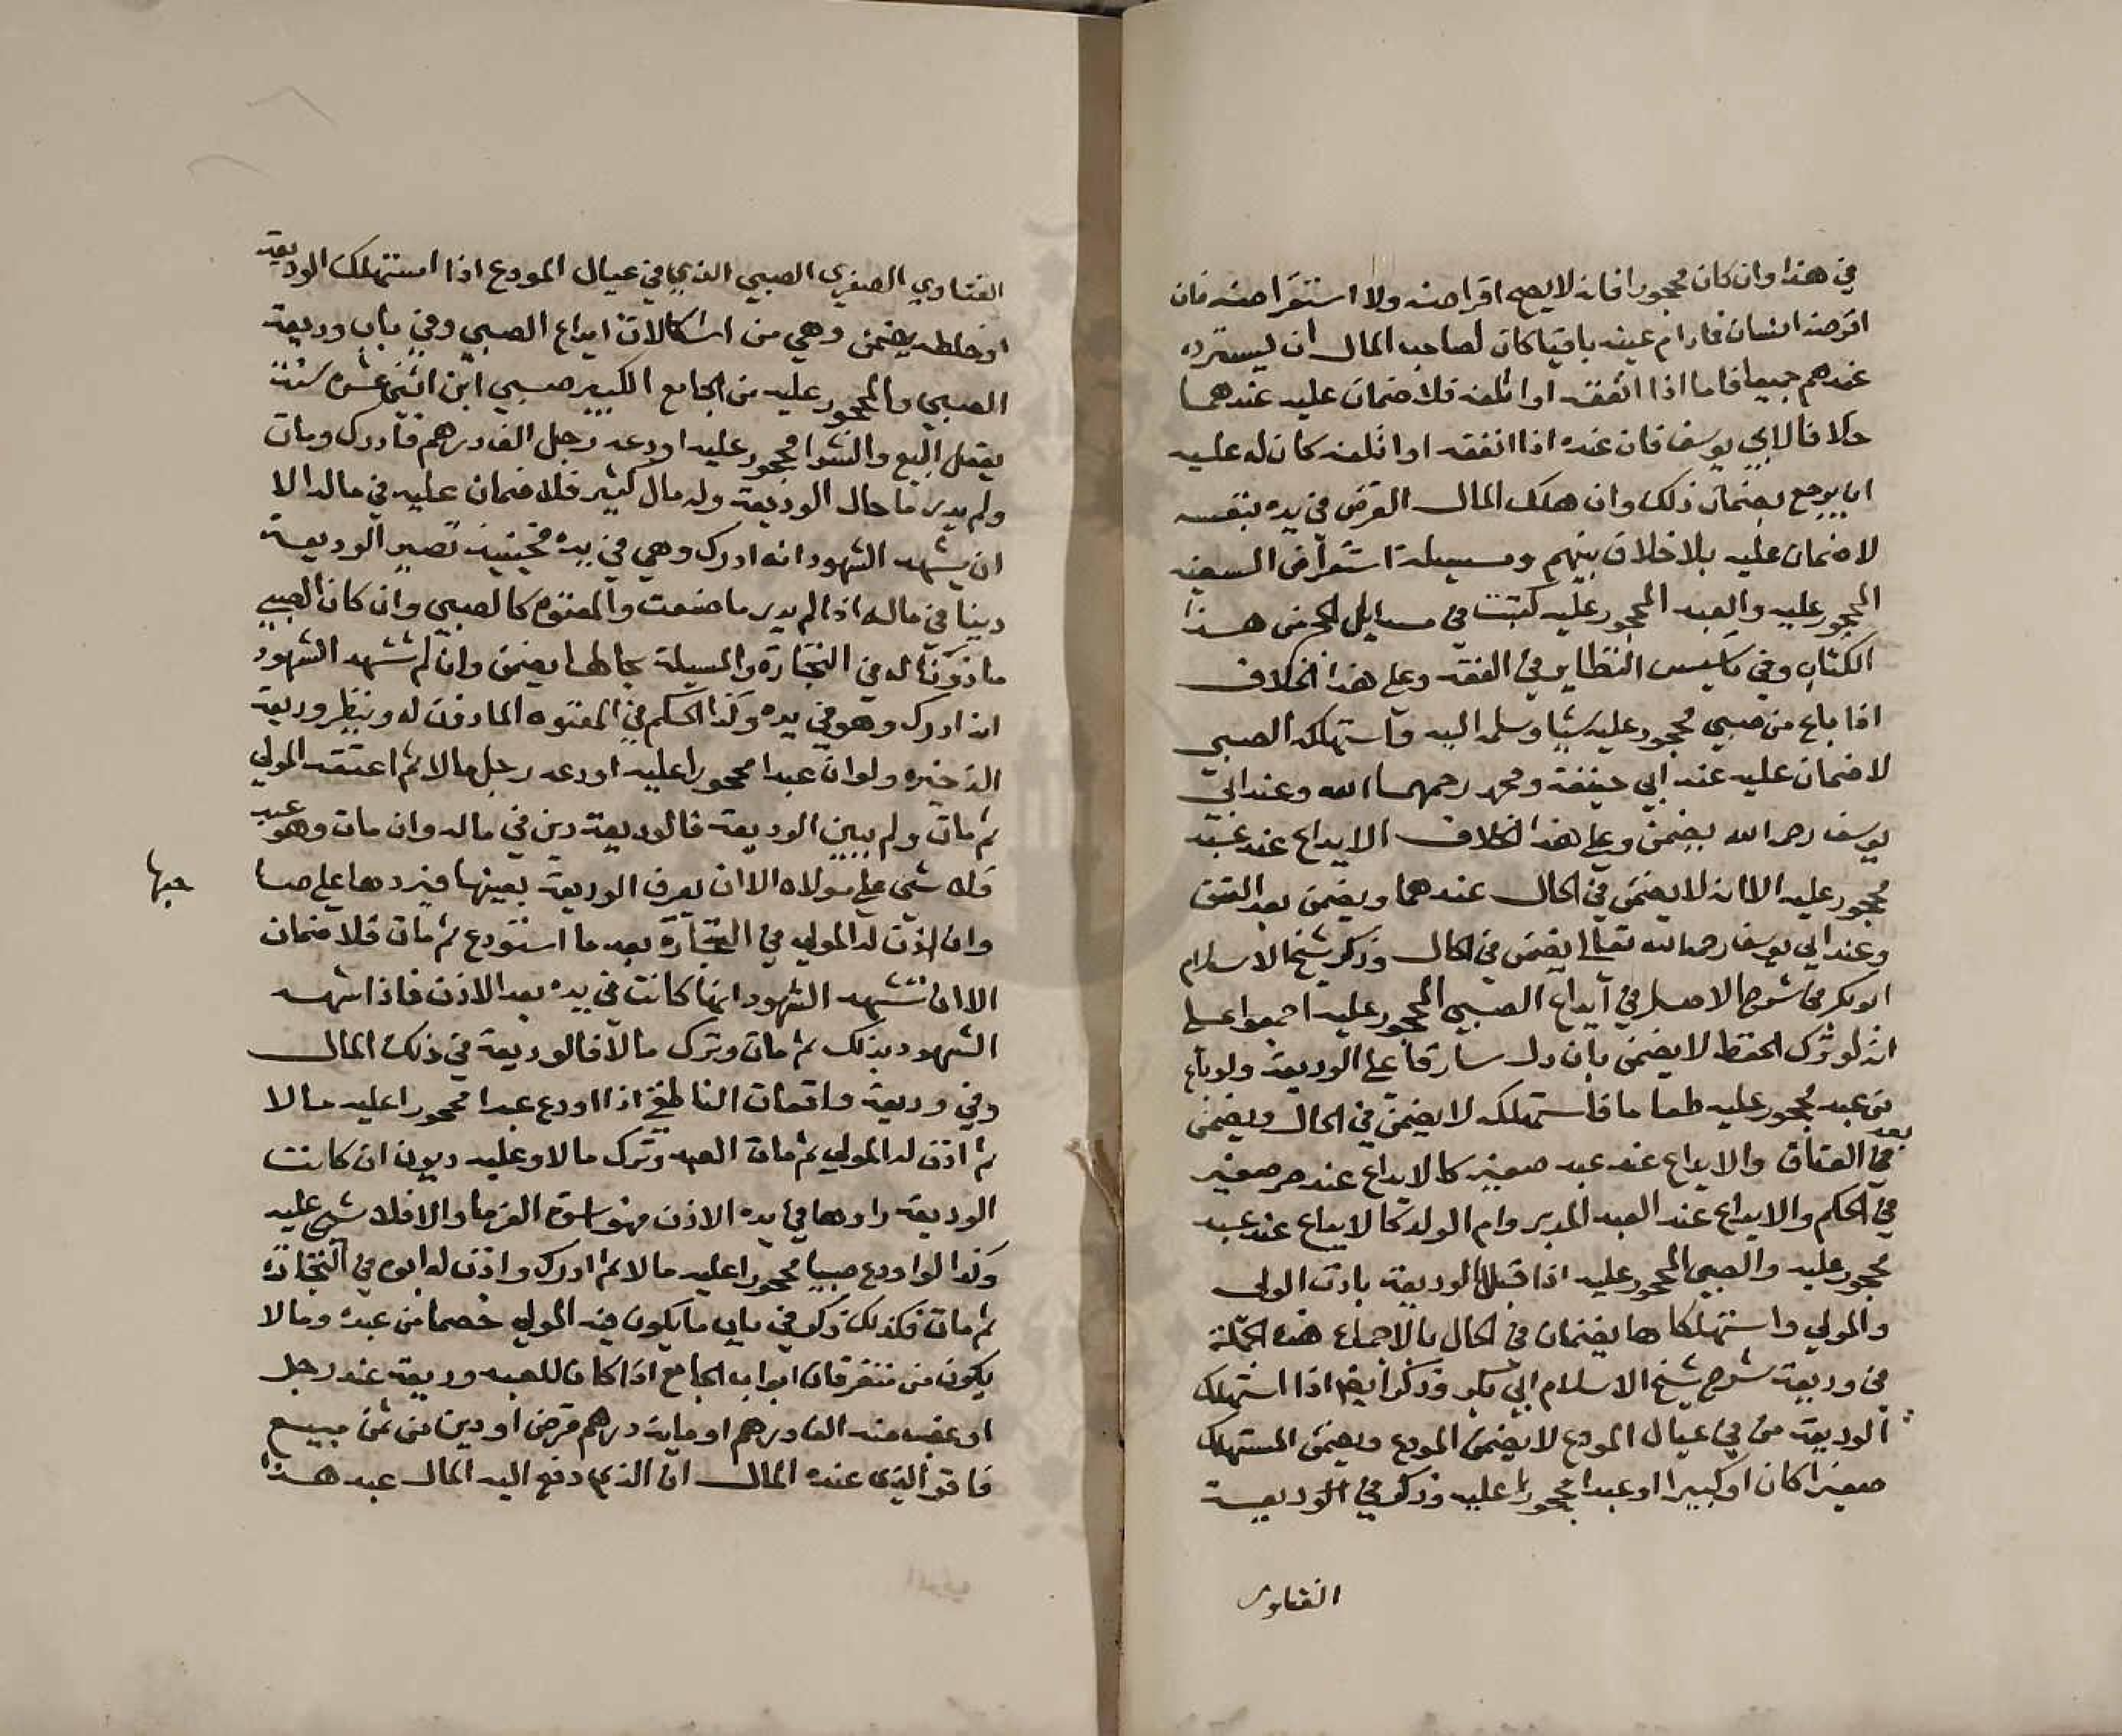 في هذا وان كان محجورا فانه لا يصح اقراضه ولا استقراضه فان
اقرضه انسان فما دام عينه باقيا كان لصاحب المال ان يسترده
عندهم جميعا فاما اذا انفقه او اتلفه فلا ضمان عليه عندهما
خلافا لابي يوسف فان عنده اذا انفقه او اتلفه كان له عليه
ان يرجع بضمان ذلك وان هلك المال القرض في يده بنفسه
لا ضمان عليه بلا خلاف بينهم ومسيلة استقراض السفيه
المحجور عليه والعبد المحجور عليه كتبت في مسايل الحجر من هذا
الكتاب وفي تاسيس النظاير في الفقه وعلى هذا الخلاف
اذا باع من صبي محجور عليه شيا وسلمه اليه فاستهلكه الصبي
لا ضمان عليه عند ابي حنيفة ومحمد رحمهما الله وعند ابي
يوسف رحمه الله يضمن وعلى هذا الخلاف الايداع عند عبد
محجور عليه الا انه لا يضمن في الحال عندهما ويضمن بعد العتق
وعند ابي يوسف رحمه الله تعالى يضمن في الحال وذكر شيخ الاسلام
ابو بكر في شرح الاصل في ايداع الصبي المحجور عليه اجمعوا على
انه لو ترك الحفظ لا يضمن بان دل سارقا على الوديعة ولو باع
من عبد محجور عليه طعاما فاستهلكه لا يضمن في الحال ويضمن
بعد
في العتاق والايداع عند عبد صغير كالايداع عند حر صغير
في الحكم والايداع عند العبد المدبر وام الولد كالايداع عند عبد
محجور عليه والصبي المحجور عليه اذا قبل الوديعة باذن الولي
والمولي واستهلكاها يضمنان في الحال بالاجماع هذه الجملة
في وديعة شرح شيخ الاسلام ابي بكر وذكر ايضا اذا استهلك
الوديعة من في عيال المودع لا يضمن المودع ويضمن المستهلك
صغيرا كان او كبيرا او عبدا محجورا عليه وذكر في الوديعة
الفتاوي
الفتاوي الصغري الصبي الذي في عيال المودع اذا استهلك الوديعة
او خلطه يضمن وهي من اشكالات ايداع الصبي وفي باب وديعة
الصبي والمحجور عليه من الجامع الكبير صبي ابن اثني عشرة سنة
يعقل البيع والشرا محجور عليه اودعه رجل الف درهم فادرك ومات
ولم يدر ما حال الوديعة وله مال كثير فلا ضمان عليه في ماله الا
ان يشهد الشهود انه ادرك وهي في يده فحينيذ تصير الوديعة
دينا في ماله اذا لم يدر ما صنعت والمعتوه كالصبي وان كان الصبي
ماذونا له في التجارة والمسيلة بحالها يضمن وان لم تشهد الشهود
انه ادرك وهو في يده وكذا الحكم في المعتوه الماذون له وينظر وديعة
الذخيره ولو ان عبدا محجورا عليه اودعه رجل مالا ثم اعتقه المولي
ثم مات ولم يبين الوديعة فالوديعة دين في ماله وان مات وهو عبد
فلا شي على مولاه الا ان يعرف الوديعة بعينها فيردها على صا
حبها
وان اذن له المولي في التجارة بعد ما استودع ثم مات فلا ضمان
الا ان تشهد الشهود انها كانت في يده بعد الاذن فاذا شهد
الشهود بذلك ثم مات وترك مالا فالوديعة في ذلك المال
وفي وديعة واقعات الناطفي اذا اودع عبدا محجورا عليه مالا
ثم اذن له المولي ثم مات العبد وترك مالا وعليه ديون ان كانت
الوديعة راوها في يده الاذن فهو اسوة الغرما والا فلا شي عليه
وكذا لو اودع صبيا محجورا عليه مالا ثم ادرك واذن له ابوه في التجارة
ثم مات فكذلك ذكر في باب ما يكون فيه المولي خصما من عبده وما لا
يكون من متفرقات ابواب الجامع اذا كان للعبد وديعة عند رجل
او غصب منه الف درهم او ماية درهم قرض او دين من ثمن مبيع
فاقر الذي عنده المال ان الذي دفع اليه المال عبد هذا